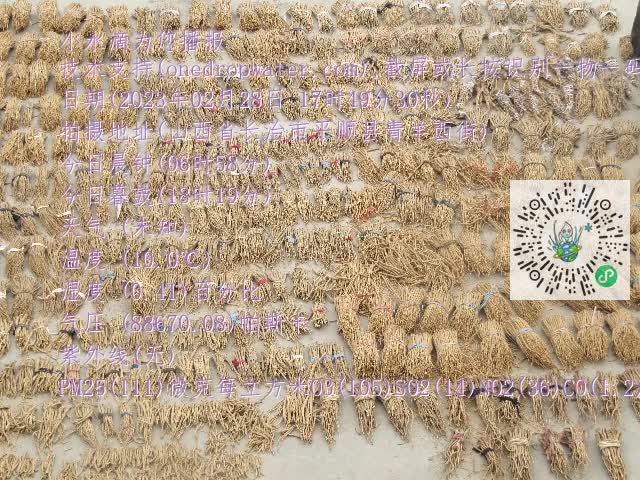 小水滴为您播报
技术支持(onedropwater.com) 截屏或长按识别一物一码
日期(2023年02月23日 17时19分30秒)
拍摄地址(山西省长治市平顺县青羊西街)
今日晨钟(06时58分)
今日暮鼓(18时19分)
天气 (未知)
温度 (10.0℃)
湿度 (0.41)百分比
气压 (88670.08)帕斯卡
紫外线(无)
PM25(111)微克每立方米O3(105)SO2(14)NO2(36)CO(1.2)